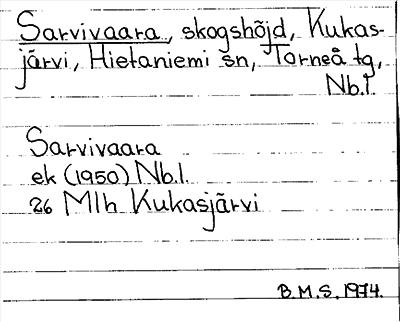 Sarvivaara, skogshöjd, Kukas-
järvi, Hietaniemi sn, Torneå tg,
Nb.l.
Sarvivaara
ek (1950) Nb.l.
26 Mlh Kukasjärvi
B.M.S. 1974.